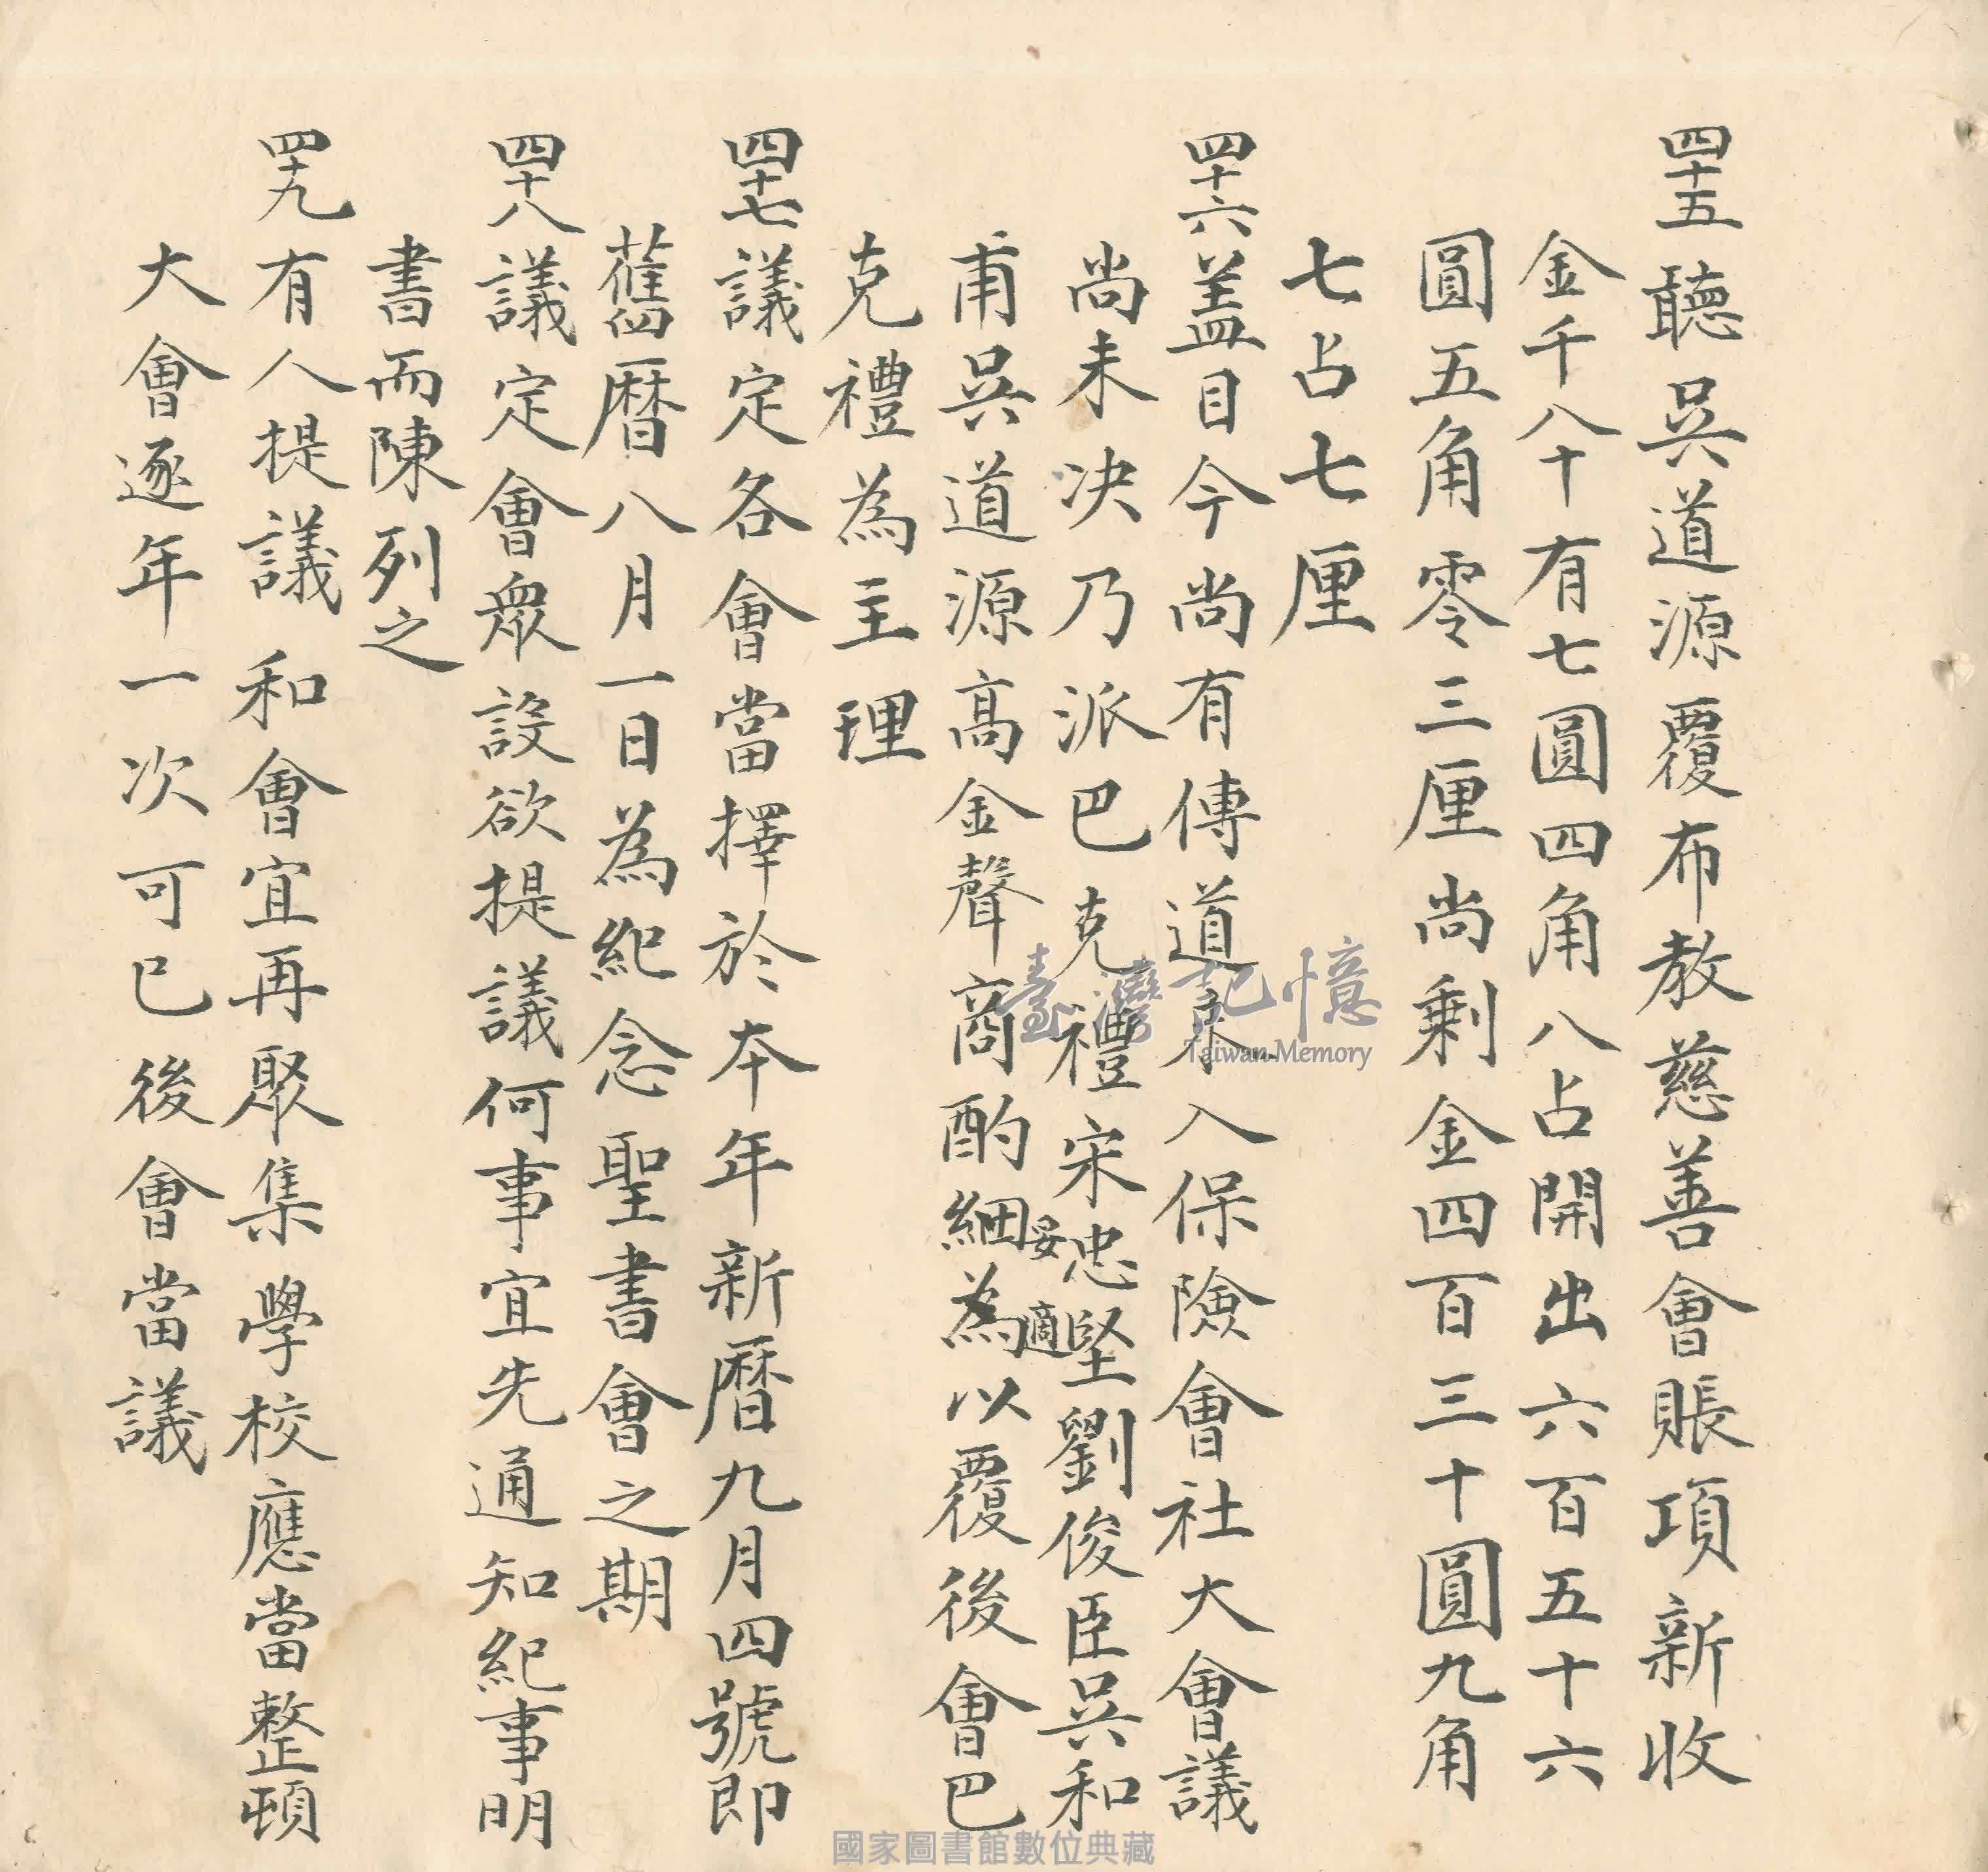 四十五聽吳道源覆布教慈善會賬項新收
金千八十有七圓四角八占開出六百五十六
圓五角零三厘尚剩金四百三十圓九角
七占七厘
四十六盖目今尚有傳道未入保險會社大會議
尚未决乃派巴克禮宋忠堅劉俊臣吳和
甫吳道源高金聲商酌妥適綑為以覆後會巴
克禮為主理
四十七議定各會當擇於本年新曆九月四號即
舊曆八月一日為紀念聖書會之期
四十八議定會眾設欲提議何事宜先通知紀事明
書而陳列之
四十九有人提議和會宜再聚集學校應當整頓
大會逐年一次可已後會當議
臺灣記憶
Taiwan Memory
國家圖書館數位典藏